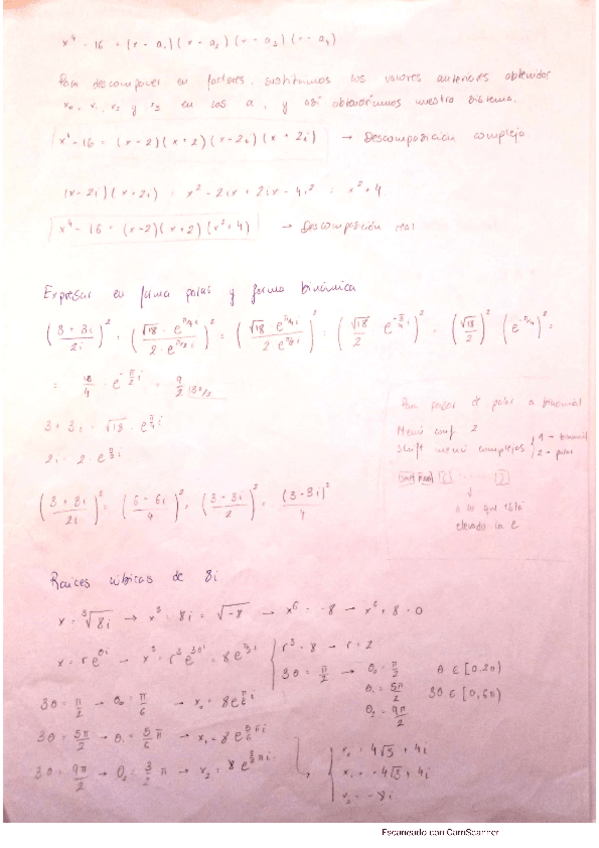 x⁴ - 16 = (x - a₁)(x - a₂)(x - a₃)(x - a₄)
Para descomponer en factores, sustituimos los valores anteriores obtenidos
x₀, x₁, x₂ y x₃ en los a, y así obtendremos nuestro sistema.
x⁴ - 16 = (x - 2)(x + 2)(x - 2i)(x + 2i) → Descomposición compleja
(x - 2i)(x + 2i) = x² - 2ix + 2ix - 4i² = x² + 4
x⁴ - 16 = (x - 2)(x + 2)(x² + 4) → Descomposición real
Expresar en forma polar y forma binómica
((3 + 3i)/2i)² = ((√18 · e^(π/4 i))/(2 · e^(π/2 i)))² = ((√18 e^(π/4 i))/(2 e^(π/2 i)))² = (√18/2 e^(-π/4 i))² = (√18/2)² (e^(-π/4))² =
= 18/4 · e^(-π/2 i) = 9/2
3 + 3i = √18 · e^(π/4 i)
2i = 2 · e^(π/2 i)
((3 + 3i)/2i)² = ((6 - 6i)/4)² = ((3 - 3i)/2)² = (3 - 3i)²/4
Para pasar de polar a binomial
Menú conf 2
Shift menú complejos { 1 - binomial
2 - polar
↓
a lo que está
elevado la e
Raíces cúbicas de 8i
x = ³√8i → x³ = 8i = √-8 → x⁶ = -8 → x⁶ + 8 = 0
x = r e^(θi) → x³ = r³ e^(3θi) = 8e^(π/2 i) { r³ = 8 → r = 2
3θ = π/2 → θ₀ = π/2 θ ∈ [0, 2π)
θ₁ = 5π/2 3θ ∈ [0, 6π)
θ₂ = 9π/2
3θ = π/2 → θ₀ = π/6 → x₀ = 8e^(π/6 i)
3θ = 5π/2 → θ₁ = 5/6 π → x₁ = 8 e^(5/6 πi)
3θ = 9π/2 → θ₂ = 3/2 π → x₂ = 8 e^(3/2 πi)
x₀ = 4√3 + 4i
x₁ = -4√3 + 4i
x₂ = -8i
Escaneado con CamScanner